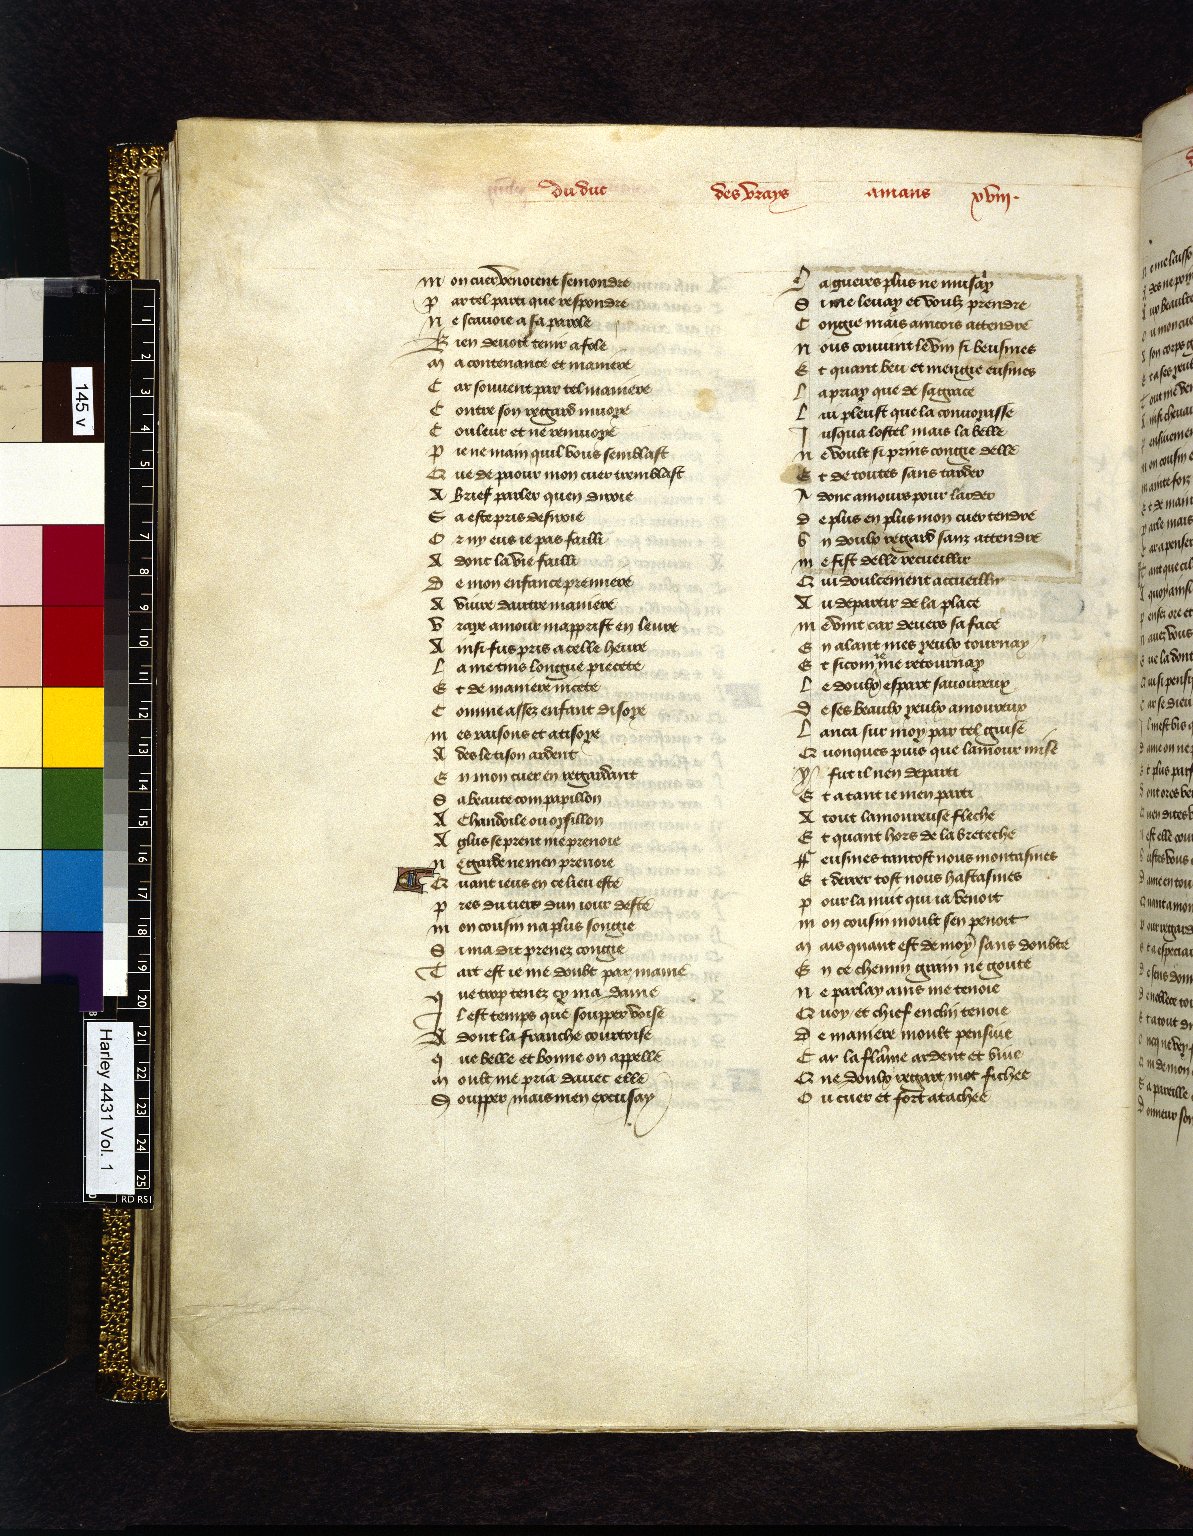 du duc des vrays amans xviii.
Mon cuer venoient semondre
Par tel parti que respondre
Ne scavoie a sa parole
Bien devoit tenir a fole
Ma contenance et maniere
Car souvent par tel maniere
Contre son regard muoye
Couleur et ne remuoye
Pie ne main quil vous semblast
Que de paour mon cuer tremblast
A brief parler quen diroie
Ga este pris desvoie
Or ny eus ie pas failli
Adonc la vie failli
De mon enfance premiere
A vivre dautre maniere
Vraye amour mapprist en leure
Ainsi fus pris a celle heure
La me tins longue piecete
Et de maniere nicete
Comme assez enfant disoye
Mes raisons et atisoye
Ades le tison ardent
En mon cuer en regardant
Sa beaute com papillon
A chandoile ou oysillon
A glus se prent me prenoie
Ne garde ne men prenoie
Quant ieus en ce lieu este
Pres du tiers dun iour deste
Mon cousin na plus songie
Si ma dit prenez congie
Tart est ie me doubt par mame
Que trop tenez cy ma dame
Il est temps que soupper voise
Adont la franche courtoise
Que belle et bonne on appelle
Moult me pria davec elle
Soupper mais men excusay
La gueres plus ne musay
Si me levay et voulz prendre
Congie mais aincois attendre
Nous convint le vin si beusmes
Et quant beu et mengie eusmes
La priay que de sa grace
Lui pleust que la convoyasse
Jusqua lostel mais la belle
Ne voult si prins congie delle
Et de toutes sans tarder
Adonc amours pour larder
De plus en plus mon cuer tendre
Un doulx regard sanz attendre
Me fist delle recueillir
Qui doulcement accueillir
Au departir de la place
Me vint car devers sa face
En alant mes yeulx tournay
Et si comme me retournay
Le doulx espart savoureux
De ses beaulx yeulx amoureux
Lanca sur moy par tel guise
Quonques puis que lamour mise
Y fut il nen departi
Et a tant ie men parti
A tout lamoureuse fleche
Et quant hors de la breteche
Feusmes tantost nous montasmes
Et derrer tost nous hastasmes
Pour la nuit qui ia venoit
Mon cousin moult sen penoit
Mais quant est de moy sans doubte
En ce chemin grain ne goute
Ne parlay ains me tenoie
Quoy et chief enclin tenoie
De maniere moult pensive
Car la flame ardent et vive
Que doulx regart mot fichee
Ou cuer et fort atachee
145 v
Harley 4431 Vol. 1